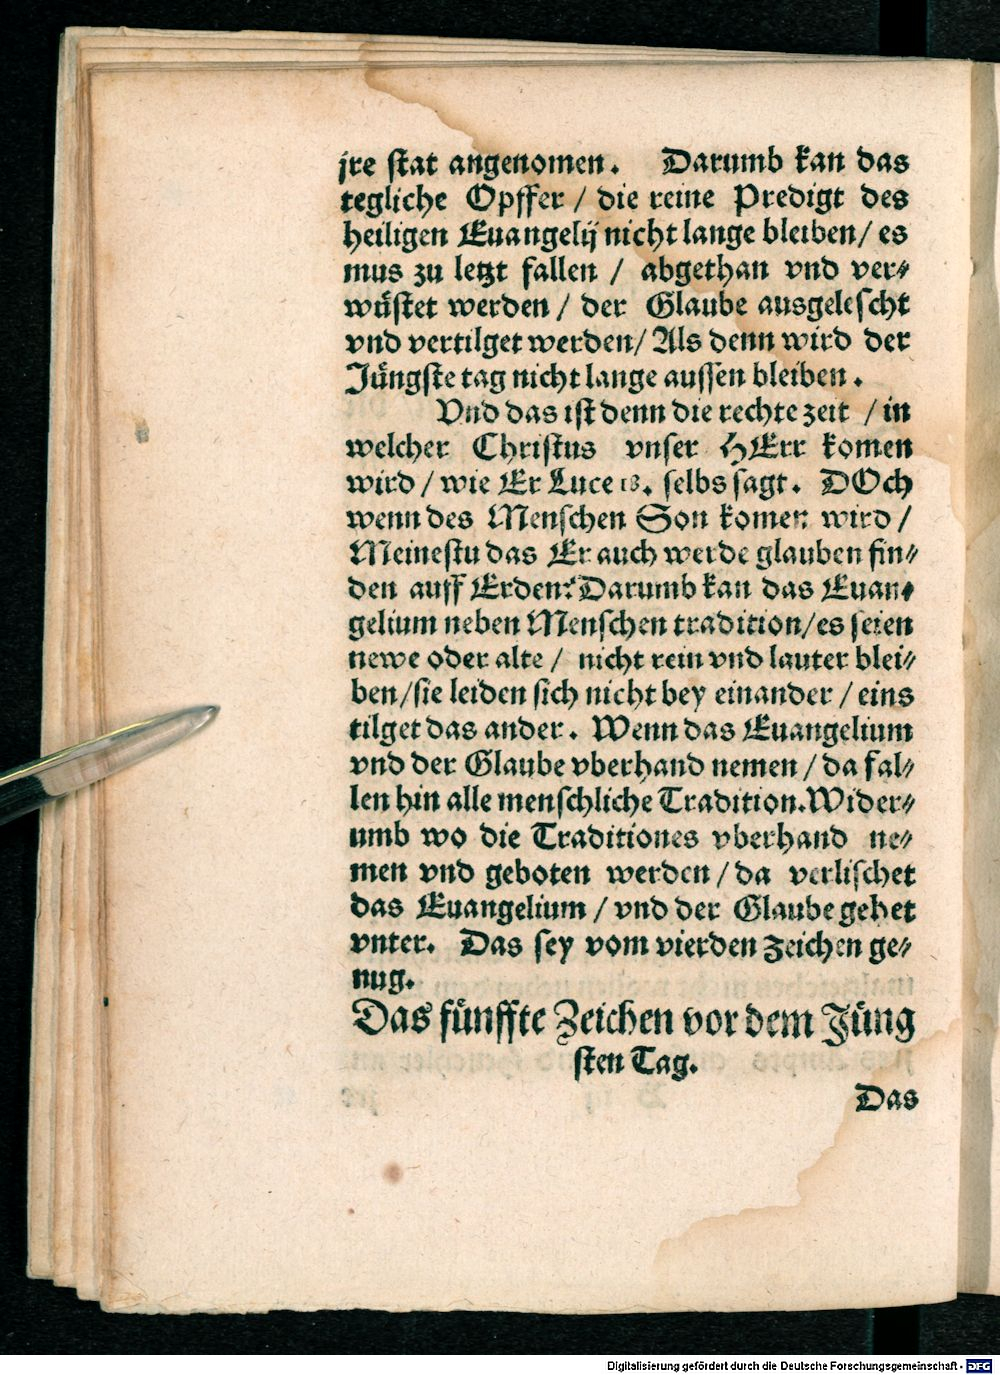 jre stat angenomen. Darumb kan das
tegliche Opffer / die reine Predigt des
heiligen Euangelij nicht lange bleiben / es
mus zu letzt fallen / abgethan vnd ver⸗
wüstet werden / der Glaube ausgelescht
vnd vertilget werden / Als denn wird der
Jüngste tag nicht lange aussen bleiben.
Vnd das ist denn die rechte zeit / in
welcher Christus vnser HErr komen
wird / wie Er Luce 18. selbs sagt. DOch
wenn des Menschen Son komen wird /
Meinestu das Er auch werde glauben fin⸗
den auff Erden? Darumb kan das Euan⸗
gelium neben Menschen tradition / es seien
newe oder alte / nicht rein vnd lauter blei⸗
ben / sie leiden sich nicht bey einander / eins
tilget das ander. Wenn das Euangelium
vnd der Glaube vberhand nemen / da fal⸗
len hin alle menschliche Tradition. Wider⸗
umb wo die Traditiones vberhand ne⸗
men vnd geboten werden / da verlischet
das Euangelium / vnd der Glaube gehet
vnter. Das sey vom vierden Zeichen ge⸗
nug.
Das fünffte Zeichen vor dem Jüng
sten Tag.
Das
Digitalisierung gefördert durch die Deutsche Forschungsgemeinschaft - DFG